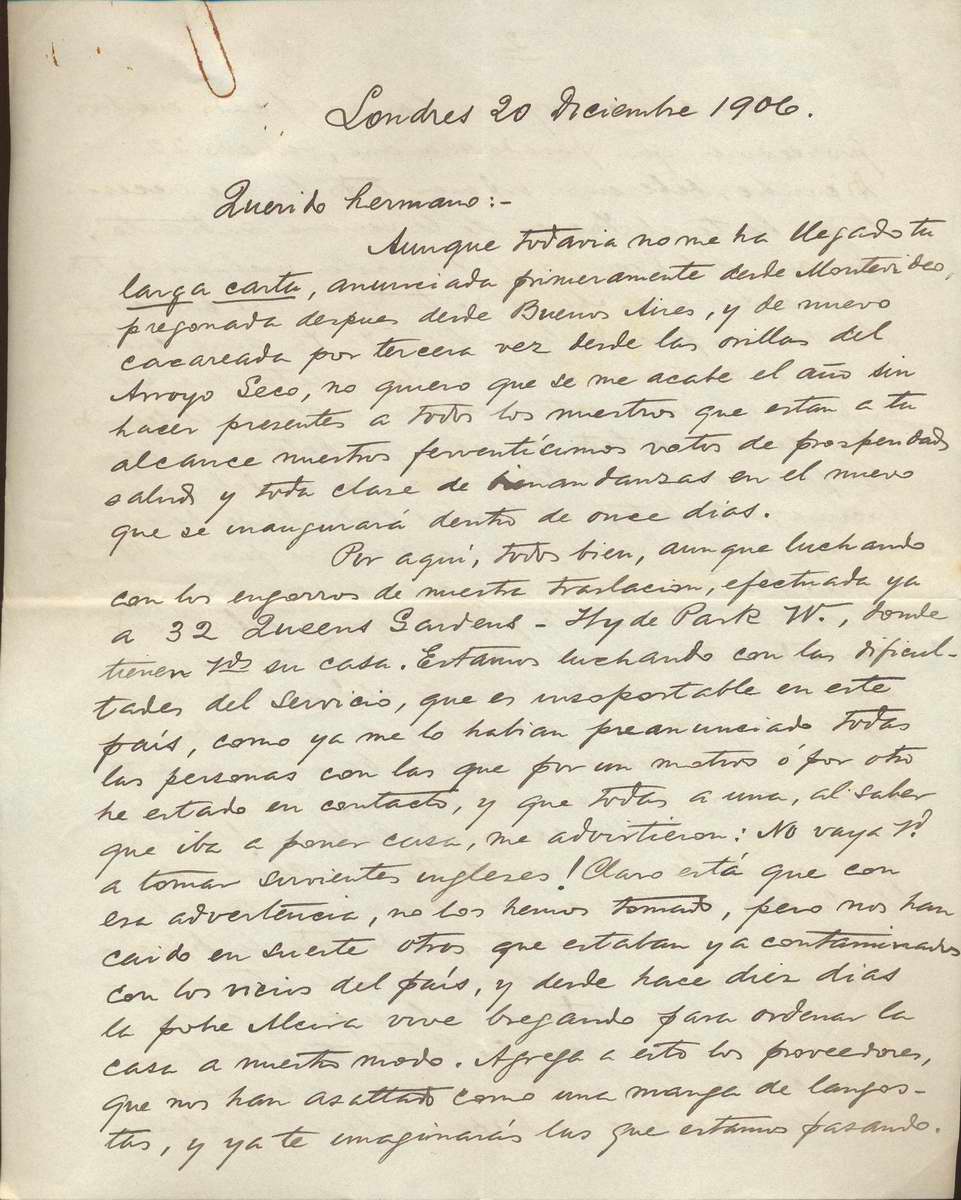 Londres 20 Diciembre 1906.
Querido hermano:-
Aunque todavia no me ha llegado tu
larga carta, anunciada primeramente desde Montevideo,
pregonada despues desde Buenos Aires, y de nuevo
cacareada por tercera vez desde las orillas del
Arroyo Seco, no quiero que se me acabe el año sin
hacer presentes a todos los nuestros que estan a tu
alcance nuestros ferventícimos votos de prosperidad,
salud y toda clase de bienandanzas en el nuevo
que se inaugurará dentro de once dias.
Por aquí, todos bien, aunque luchando
con los engorros de nuestra traslacion, efectuada ya
a 32 Queens Gardens - Hyde Park W., donde
tienen Vds su casa. Estamos luchando con las dificul-
tades del servicio, que es insoportable en este
país, como ya me lo habian preanunciado todas
las personas con las que por un motivo ó por otro
he estado en contacto, y que todas a una, al saber
que iba a poner casa, me advirtieron: No vaya Vd.
a tomar sirvientes ingleses! Claro está que con
esa advertencia, no los hemos tomado, pero nos han
caido en suerte otros que estaban ya contaminados
con los vicios del país, y desde hace diez dias
la pobre Alcira vive bregando para ordenar la
casa a nuestro modo. Agrega a esto los proveedores,
que nos han asaltado como una manga de langos-
tas, y ya te imaginarás las que estamos pasando.